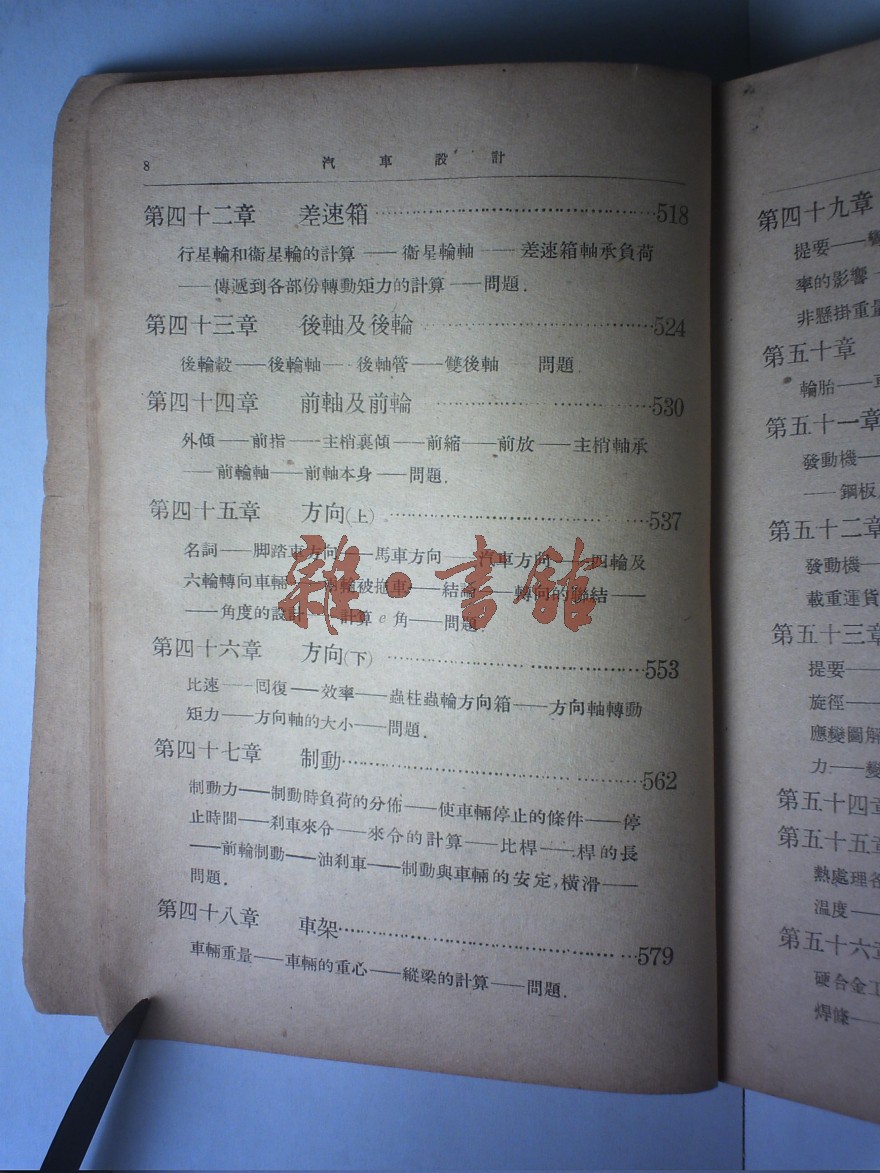 8 汽車設計
第四十二章 差速箱……518
行星輪和衞星輪的計算——衞星輪軸——差速箱軸承負荷
——傳遞到各部份轉動矩力的計算——問題．
第四十三章 後軸及後輪……524
後輪轂——後輪軸——後軸管——雙後軸 問題
第四十四章 前軸及前輪……530
外傾——前指——主梢裏傾——前縮——前放——主梢軸承
——前輪軸——前軸本身——問題．
第四十五章 方向(上)……537
名詞——脚踏車方向——馬車方向——汽車方向——四輪及
六輪轉向車輛——輪被拖車——結論——轉向的聯結——
——角度的設計——計算e角——問題．
第四十六章 方向(下)……553
比速——囘復——效率——蟲柱蟲輪方向箱——方向軸轉動
矩力——方向軸的大小——問題．
第四十七章 制動……562
制動力——制動時負荷的分佈——使車輛停止的條件——停
止時間——刹車來令——來令的計算——比桿——桿的長
——前輪制動——油刹車——制動與車輛的安定,橫滑——
問題．
第四十八章 車架……579
車輛重量——車輛的重心——縱梁的計算——問題．
雜·書館
第四十九章
提要——
率的影響
非懸掛重量
第五十章
輪胎——
第五十一章
發動機——
——鋼板
第五十二章
發動機——
載重運貨
第五十三章
提要——
旋徑——
應變圖解
力——
第五十四章
第五十五章
熱處理各
溫度——
第五十六章
硬合金工
焊條——